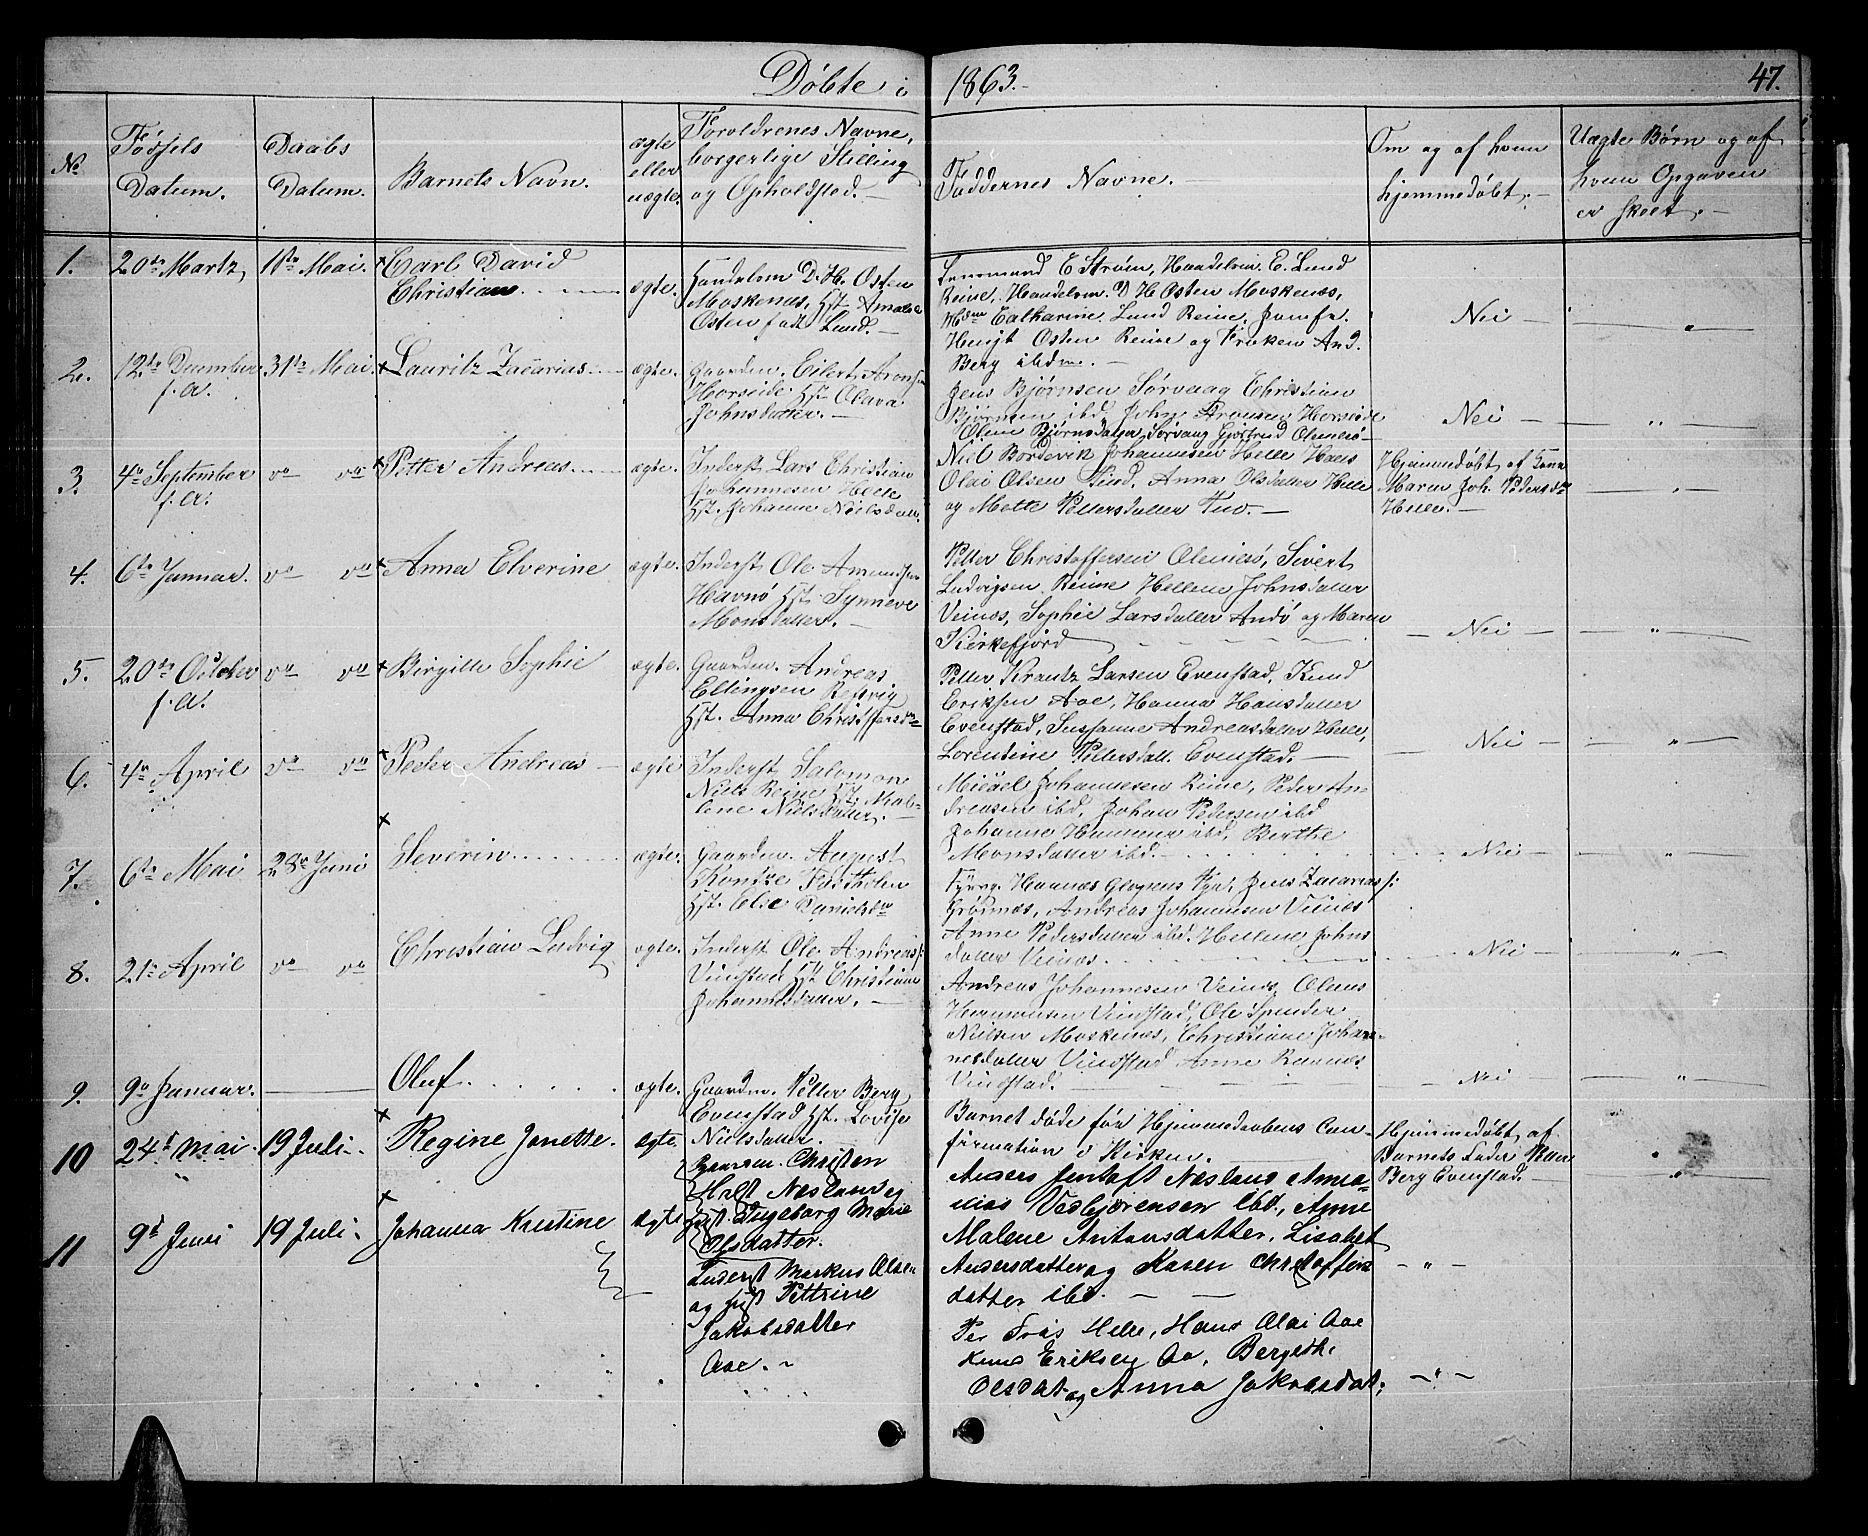 Døbte i 1863. 47.
No
Fødsels Datum.
Daabs Datum.
Barnets Navn.
ægte eller uægte.
Forældrenes Navne, borgerlige Stilling og Opholdsted.
Faddernes Navne.
Om og af hvem hjemmedøbt.
Uægte Børn og af hvem Opgaven er skeet.
1. 20de Martz 1ste Mai. Carl David
Christian ægte.
Handelsm D. H. Osten
Moskenæs, Hst Amalie
Osten fød Lund.
Lensmand E Strøm, Handelsm. E. Lund
Reine, Handelsm. D H Osten Moskenæs,
Catharine Lund Reine, Jomfr.
Osten Reine og Frøken And.
Berg ibdm.
Nei
2. 12te December f. A. 31te Mai Lauritz Zacarias ægte.
Gaardm. Eilert Arons
Horseide Hst Olava
Johnsdatter.
Jens Bjørnsen Sørvaag Christian
Bjørnsen ibd, John Aronsen Horseide
Oline Bjørnsdatter Sørvaag
Nei
3. 4de September f. A. do do Petter Andreas ægte.
Inderst Lars Christian
Johannesen Helle
Hst. Johanne Nielsdatt.
Niel Bordevik Johannesen Helle Hans
Olai Olsen Anna Olsdatter Helle
og Mette Pettersdatter
Hjemmedøbt af
Maren Joh. Pedersd
Helle.
4. 6te Januar. do do Anna Elverine ægte.
Inderst Ole Amundsen
Havnø Hst. Synneve
Monsdatter.
Petter Christoffersen Olenilsø, Sivert
Ludvigsen Reine Hellene Johnsdatter
Veinæs, Sophie Larsdatter Andø og Maren
Kirkefjord
Nei
5. 20de October f. A. do do Birgitte Sophie ægte.
Gaardm. Andreas
Ellingsen Refsvig
Hst. Anna Christoffersd
Petter Krantz Larsen Evenstad, Knud
Eriksen Aae, Hanna Hansdatter
Evenstad, Sussanne Andreasdatter Helle,
Lorentine Pettersdatt. Evenstad.
Nei
6. 4de April do do Peder Andreas ægte
Inderst Salomon
Niels Reine Hst Mal-
lene Nielsdatter.
Micael Johannesen Reine, Peder An-
dreasen ibd, Johan Pedersen ibd
Johanne Hammer ibd, Berthe
Monsdatter ibd.
Nei
7. 6te Mai 28de Juni Severin ægte.
Gaardm. August
Kontze
Hst. Elie Danielsd
Hannæs Jens Zacarias
Andreas Johannesen Veinæs
Anne Pedersdatter ibd. Hellene Johns
datter Veinæs.
Nei
8. 21de April do do Christian Ludvig ægte.
Inderst Ole Andreas
Vindstad Hst Christianne
Johannesdatter.
Andreas Johannesen Veinæs Olaus
Hermansen Vindstad, Ole Spender
Nielsen Moskenæs, Christiane Johan-
nesdatter Vindstad Anne
Vindstad.
Nei
9. 9de Januar. Oluf ægte.
Gaardm. Petter Berg
Evenstad Hst. Lovise
Nielsdatter.
Barnet døde før Hjemmedaabens Con-
firmation i Kirken.
Hjemmedøbt af
Barnets Fader Petter
Berg Evenstad.
10 24de Mai 19 Juli Regine Janette. Ægte
Gaardm. Christen
Nesland og
Hst. Ingeborg Marie
Olsdatter.
Anders Jentoft Nesland
Vedbjørensen ibd., Anne
Malene Antonsdatter, Lisabet
Andersdatter og Karen Christoffers
datter ibd.
11 9de Juni 19 Juli. Johanna Kristine Ægte
Inderst Markus Olsen
og Hst Pettrine
Jakobsdatter
Aae.
Per Friis Helle, Hans Olai Aae
Knud Eriksen Aa, Bergeth.
Olsdat og Anna Jakobsdat.